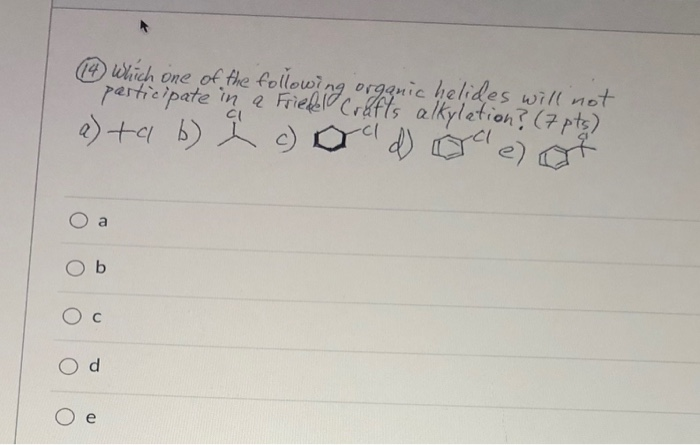 (14) Which one of the following organic halides will not
participate in a Friedel Crafts alkylation? (7 pts)
a) Cl b) Cl c) Cl d) Cl e) Cl
a
b
c
d
e